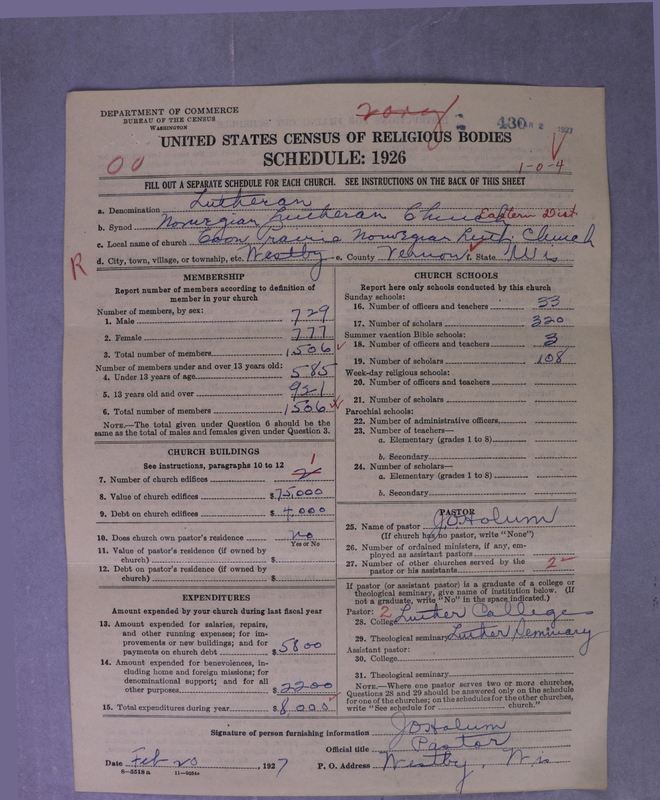 DEPARTMENT OF COMMERCE
BUREAU OF THE CENSUS
WASHINGTON
430
1927
UNITED STATES CENSUS OF RELIGIOUS BODIES
SCHEDULE: 1926
1-0-4
FILL OUT A SEPARATE SCHEDULE FOR EACH CHURCH. SEE INSTRUCTIONS ON THE BACK OF THIS SHEET
a. Denomination Lutheran
b. Synod Norwegian Lutheran Church Eastern Dist
c. Local name of church Coon Prairie Norwegian Luth Church
d. City, town, village, or township, etc. Westby e. County Vernon f. State Wis
R
MEMBERSHIP
Report number of members according to definition of
member in your church
Number of members, by sex:
1. Male 729
2. Female 777
3. Total number of members 1506
Number of members under and over 13 years old:
4. Under 13 years of age 585
5. 13 years old and over 921
6. Total number of members 1506
NOTE.—The total given under Question 6 should be the
same as the total of males and females given under Question 3.
CHURCH BUILDINGS
See instructions, paragraphs 10 to 12
7. Number of church edifices 2 1
8. Value of church edifices $75,000
9. Debt on church edifices $4,000
10. Does church own pastor's residence no
Yes or No
11. Value of pastor's residence (if owned by
church) $
12. Debt on pastor's residence (if owned by
church) $
EXPENDITURES
Amount expended by your church during last fiscal year
13. Amount expended for salaries, repairs,
and other running expenses; for im-
provements or new buildings; and for
payments on church debt $5800
14. Amount expended for benevolences,
including home and foreign missions; for
denominational support; and for all
other purposes $2200
15. Total expenditures during year $8,000
CHURCH SCHOOLS
Report here only schools conducted by this church
Sunday schools:
16. Number of officers and teachers 33
17. Number of scholars 320
Summer vacation Bible schools:
18. Number of officers and teachers 3
19. Number of scholars 108
Week-day religious schools:
20. Number of officers and teachers
21. Number of scholars
Parochial schools:
22. Number of administrative officers
23. Number of teachers—
a. Elementary (grades 1 to 8)
b. Secondary
24. Number of scholars—
a. Elementary (grades 1 to 8)
b. Secondary
PASTOR
25. Name of pastor J.O. Holum
(If church has no pastor, write "None")
26. Number of ordained ministers, if any, em-
ployed as assistant pastors
27. Number of other churches served by the
pastor or his assistants 2
If pastor (or assistant pastor) is a graduate of a college or
theological seminary, give name of institution below. (If
not a graduate, write "No" in the space indicated.)
Pastor: 2
28. College Luther College
29. Theological seminary Luther Seminary
Assistant pastor:
30. College
31. Theological seminary
NOTE.—Where one pastor serves two or more churches,
Questions 28 and 29 should be answered only on the schedule
for one of the churches; on the schedules for the other churches,
write "See schedule for church."
Signature of person furnishing information J O Holum
Official title Pastor
Date Feb 20, 1927 P. O. Address Westby, Wis
8—5518a 11—9264